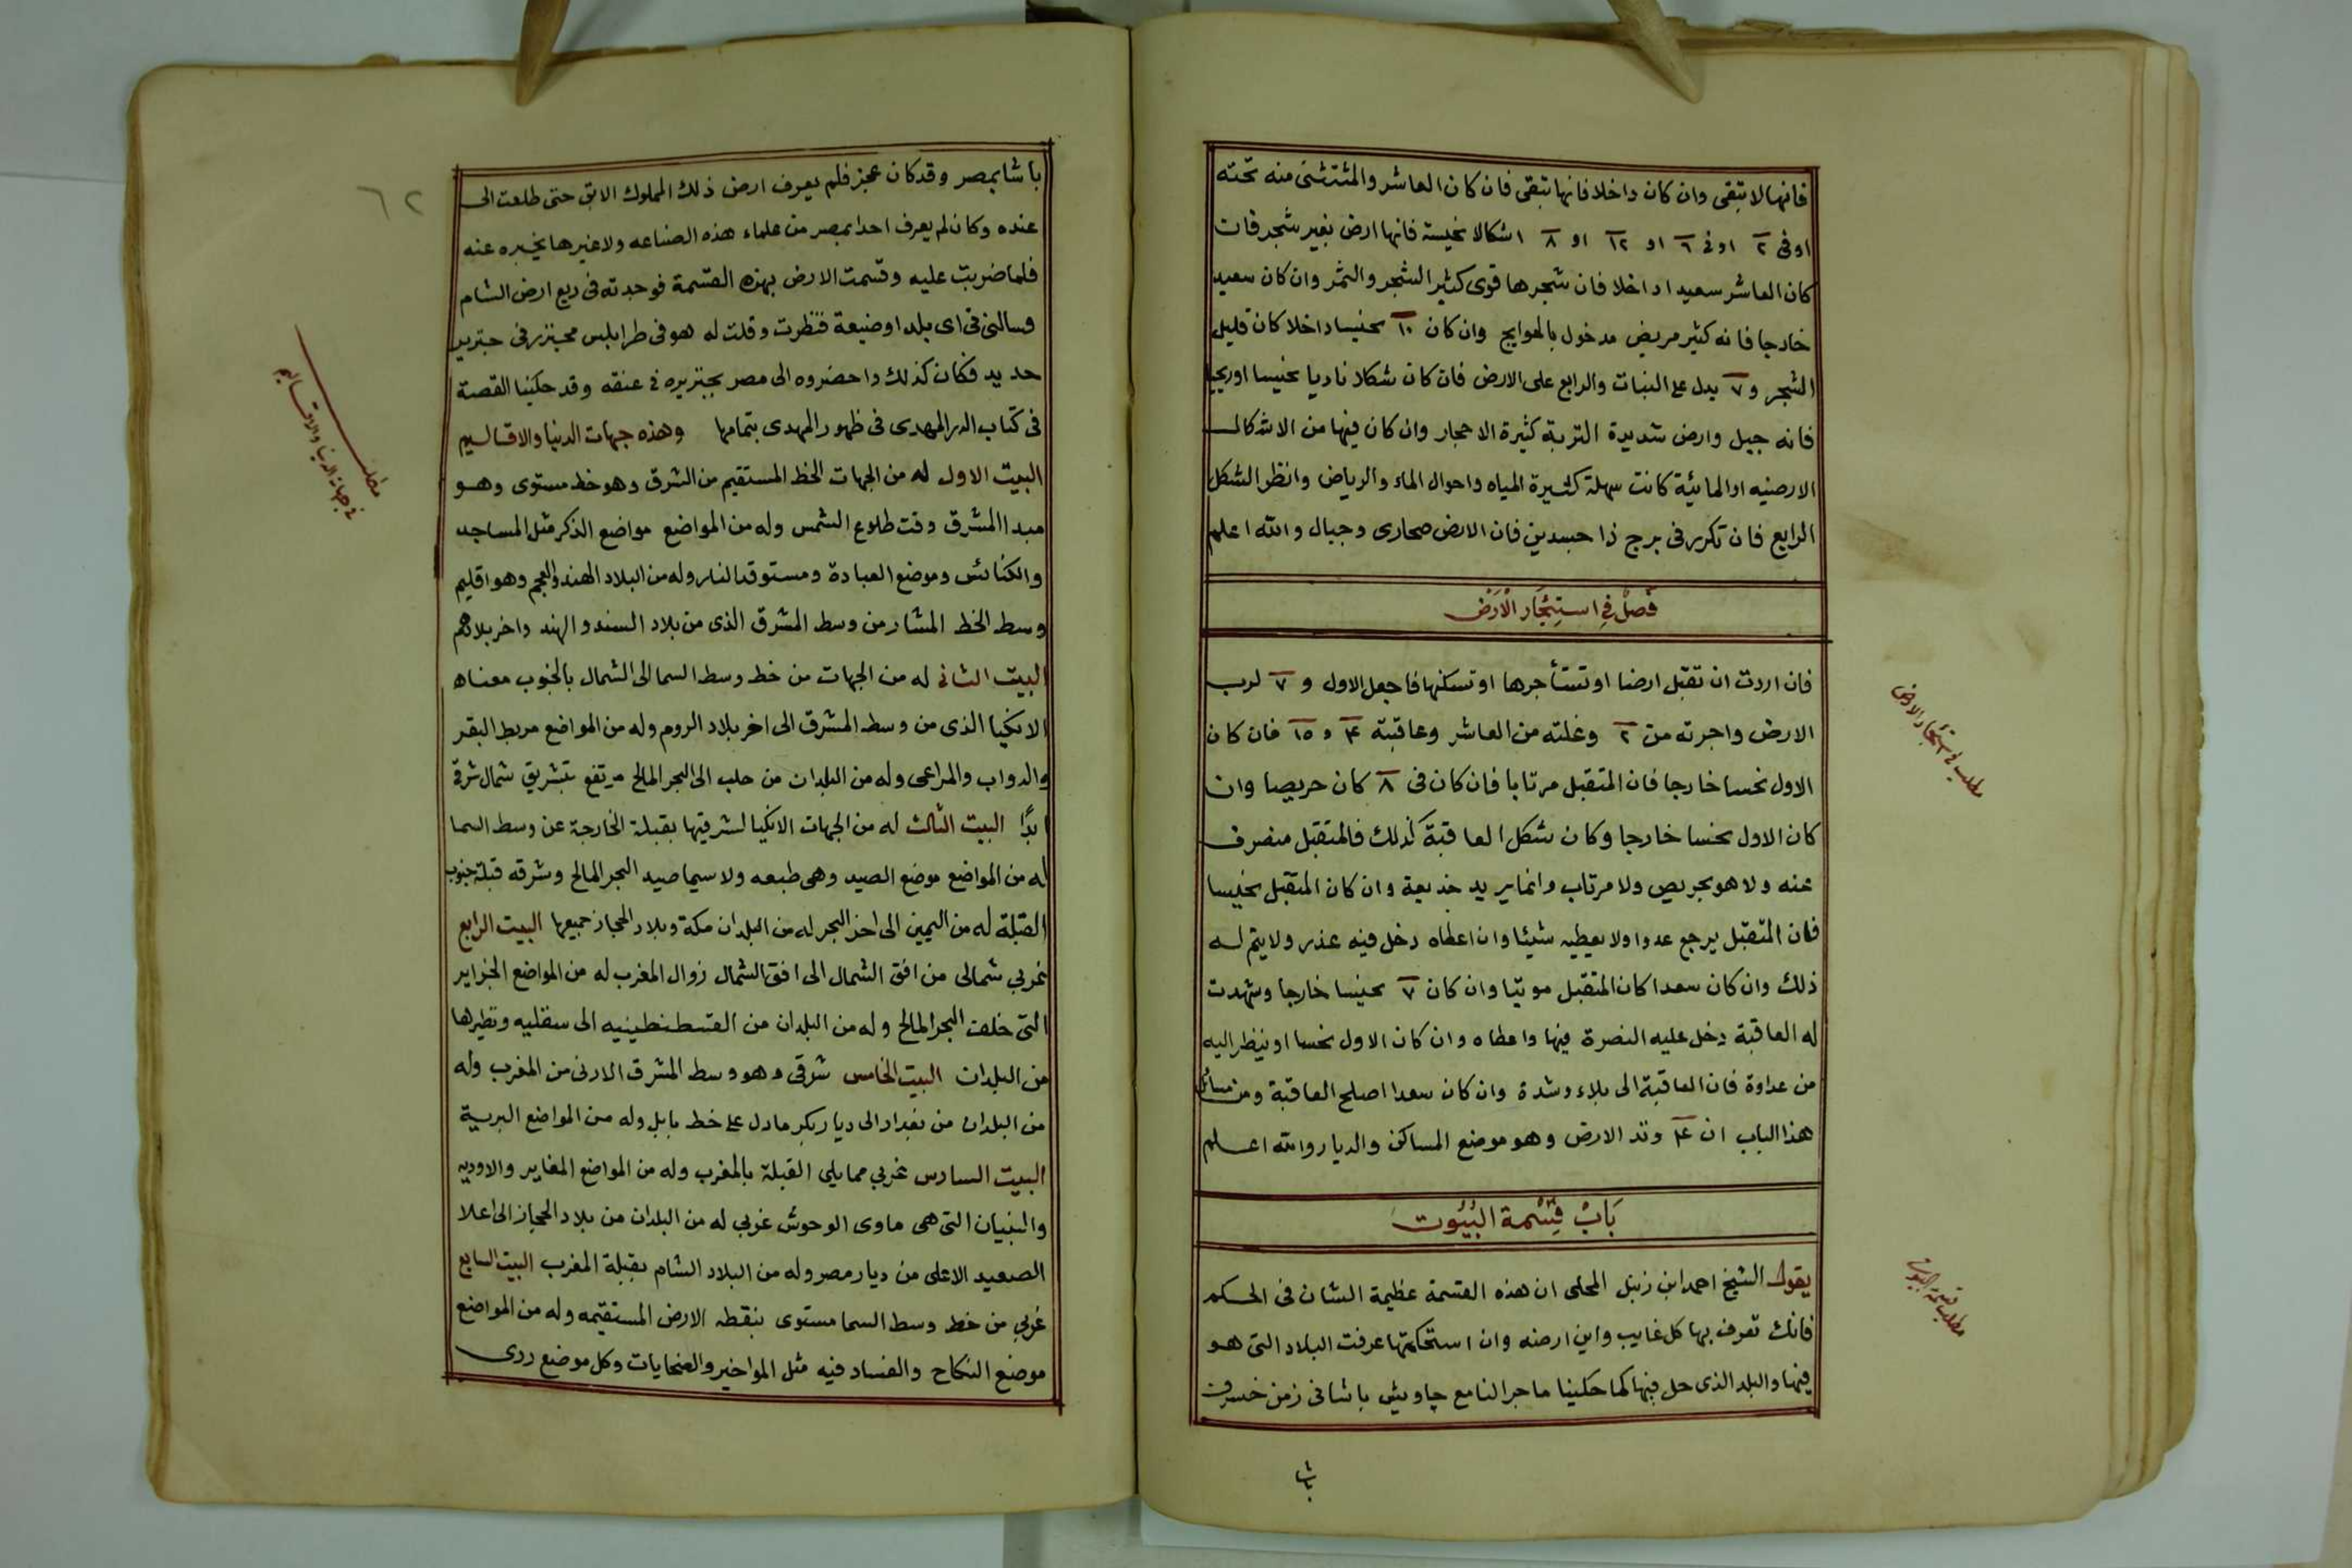 فانها لا تبقى وان كان داخلا فانها تبقى فان كان العاشر والمئتشنى منه تحته
او فى ٢ او فى ٦ او ١٢ او ٨ اشكالا نحيسة فانها ارض بغير شجر فان
كان العاشر سعيدا داخلا فان شجرها قوى كثير الشجر والثمر وان كان سعيد
خارجا فانه كثير مريض مدخول بالهوايج وان كان ١٠ نحيسا داخلا كان قليل
الشجر و ٧ يدل على النبات والرابع على الارض فان كان شكلا ناديا نحيسا اوريحيا
فانه جبل وارض شديدة التربة كثيرة الاحجار وان كان فيها من الاشكال
الارضيه او المائية كانت سهلة كثيرة المياه واحوال الماء والرياض وانظر الشكل
الرابع فان تكرر فى برج ذا جسدين فان الارض صحارى وجبال والله اعلم
فصل في استيجار الارض
فان اردت ان تقبل ارضا او تستأجرها او تسكنها فاجعل الاول و ٧ لرب
الارض واجرته من ٢ وغلته من العاشر وعاقبة ٤ و ١٥ فان كان
الاول نحسا خارجا فان المتقبل مرتابا فان كان فى ٨ كان حريصا وان
كان الاول نحسا خارجا وكان شكل العاقبة كذلك فالمتقبل منصرف
عنه ولا هو بحريص ولا مرتاب وانما يريد خديعة وان كان المتقبل نحيسا
فان المتقبل يرجع عدوا ولا يعطيه شيئا وان اعطاه دخل فيه عذر ولا يتم له
ذلك وان كان سعدا كان المتقبل موتيا وان كان ٧ نحيسا خارجا وشهدت
له العاقبة دخل عليه النصرة فيها واعطاه وان كان الاول نحسا او ينظر اليه
من عداوة فان العاقبة الى بلاء وشدة وان كان سعدا اصلح العاقبة ومن مسائل
هذا الباب ان ٤ وتد الارض وهو موضع المساكن والديار والله اعلم
باب قسمة البيوت
يقول الشيخ احمد ابن زنبل المحلى ان هذه القسمة عظيمة الشان فى الحكم
فانك تعرف بها كل غايب واين ارضه وان استحكمتها عرفت البلاد التى هو
فيها والبلد الذى حل فيها كما حكينا ما جرا لنا مع چاويش باشا فى زمن خسرف
با شا
مطلب في استيجار الارض
مطلب قسمة البيوت
٦٢
باشا بمصر وقد كان عجز فلم يعرف ارض ذلك المملوك الابق حتى طلعت الى
عنده وكان لم يعرف احدا بمصر من علماء هذه الصناعه ولا غيرها يخبره عنه
فلما ضربت عليه وقسمت الارض بهذه القسمة فوجدته فى ربع ارض الشام
وسالنى فى اى بلد او ضيعة فنظرت وقلت له هو فى طرابلس محبنزر فى جنزير
حديد فكان كذلك واحضروه الى مصر بجنزيره فى عنقه وقد حكينا القصة
فى كتاب الدر المهدى فى ظهور المهدى بتمامها وهذه جهات الدنيا والاقاليم
البيت الاول له من الجهات الخط المستقيم من الشرق وهو خط مستوى وهو
مبدا المشرق وقت طلوع الشمس وله من المواضع مواضع الذكر مثل المساجد
والكنائس وموضع العبادة ومستوقد النار وله من البلاد الهند والعجم وهو اقليم
وسط الخط المشار من وسط المشرق الذى من بلاد السند والهند واخر بلادهم
البيت الثانى له من الجهات من خط وسط السما الى الشمال بالجنوب معناه
الانكيا الذى من وسط المشرق الى اخر بلاد الروم وله من المواضع مربط البقر
والدواب والمراعى وله من البلدان من حلب الى البحر المالح مرتفع بتشريق شمال شرقى
ابدًا البيت الثالث له من الجهات الانكيا لشرقيتها بقبلة الخارجة عن وسط السما
له من المواضع موضع الصيد وهى طبعه ولا سيما صيد البحر المالح وشرقه قبلة جنوب
القبلة له من اليمين الى اخر البحر له من البلدان مكة وبلاد الحجاز جميعها البيت الرابع
غربي شمالى من افق الشمال الى افق الشمال زوال المغرب له من المواضع الجزاير
التى خلف البحر المالح وله من البلدان من القسطنطينيه الى سقليه ونظيرها
من البلدان البيت الخامس شرقى وهو وسط المشرق الادنى من المغرب وله
من البلدان من بغداد الى ديار بكر ما دل على خط بابل وله من المواضع البرية
البيت السادس غربي مما يلى القبلة بالمغرب وله من المواضع المغاير والاوديه
والبنيان التى هى ماوى الوحوش غربي له من البلدان من بلاد الحجاز الى اعلا
الصعيد الاعلى من ديار مصر وله من البلاد الشام بقبلة المغرب البيت السابع
غربي من خط وسط السما مستوى بنقطه الارض المستقيمه وله من المواضع
موضع النكاح والفساد فيه مثل المواخير والعنحايات وكل موضع ردى
مطلب
في جهات الدنيا والاقاليم